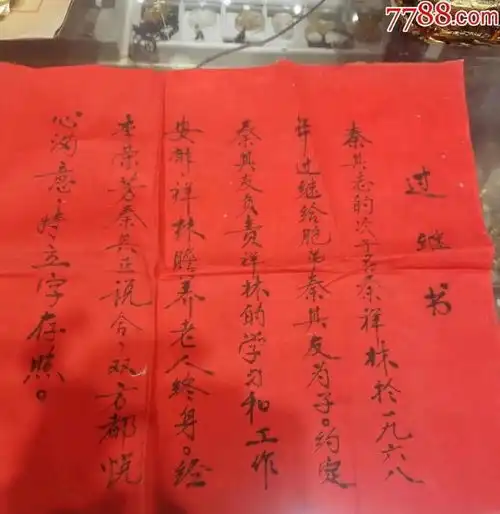 7788.com
中国收藏热线
过继书
秦其志的次子名秦祥林于一九六八
年过继给胞弟秦其友为子。约定
秦其友负责祥林的学习和工作
安排,祥林瞻养老人终身。经
李荣芳秦其正说合,双方都悦
心满意,特立字存照。